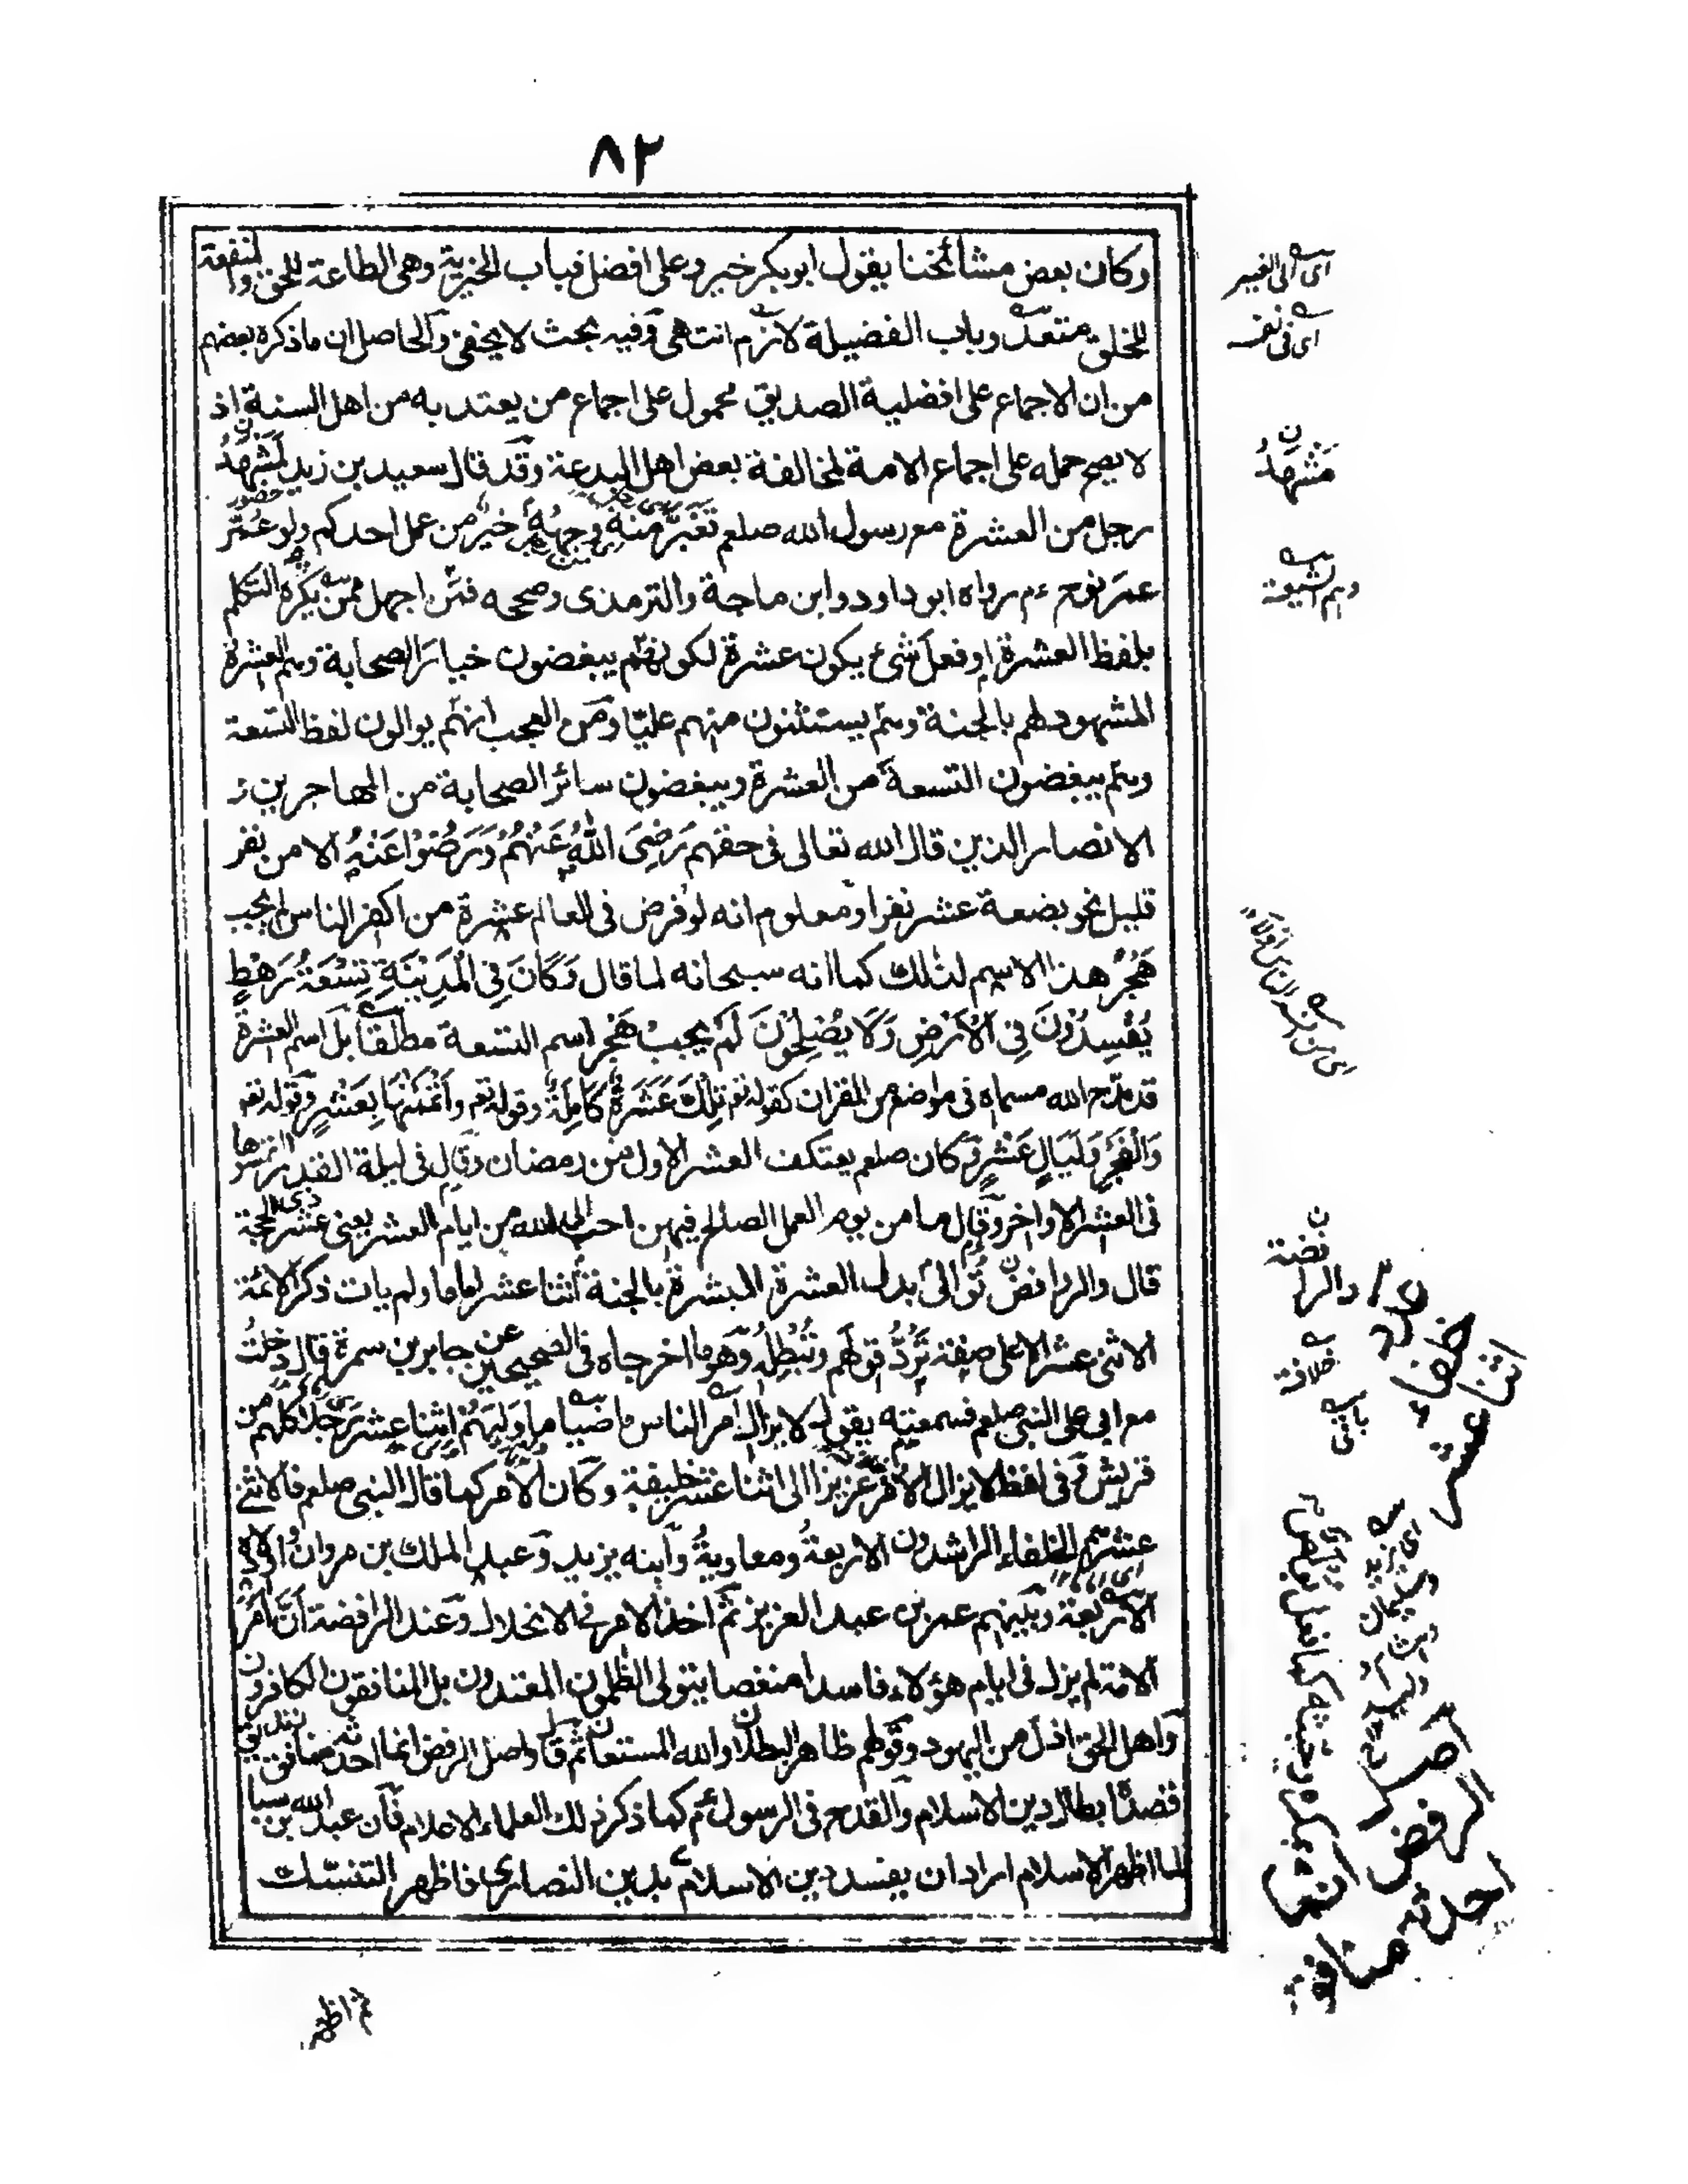 ٨٢
وكان بعض مشائخنا يقول ابو بكر خير وعلى افضل فباب الخيرية وهى الطاعة للحق والمنفعة
للخلق متعد وباب الفضيلة لازم انتهى وفيه بحث لا يخفى والحاصل ان ما ذكره بعضهم
من ان الاجماع على افضلية الصديق محمول على اجماع من يعتد به من اهل السنة اذ
لا يصح حمله على اجماع الامة لمخالفة بعض اهل البدعة وقد قال سعيد بن زيد لمشهد
رجل من العشرة مع رسول الله صلعم تغبر منه وجهه خير من عمل احدكم ولو عمر
عمر نوح ءم رواه ابو داود وابن ماجة والترمذى وصححه فمن اجهل ممن يكره التكلم
بلفظ العشرة او فعل شئ يكون عشرة لكونهم يبغضون خيار الصحابة وهم العشرة
المشهود لهم بالجنة وهم يستثنون منهم عليا ومن العجب انهم يوالون لفظ التسعة
وهم يبغضون التسعة من العشرة ويبغضون سائر الصحابة من المهاجرين و
الانصار الذين قال الله تعالى فى حقهم رَضِىَ اللهُ عَنْهُمْ وَرَضُوْا عَنْهُ الا من نفر
قليل نحو بضعة عشر نفرا ومعلوم انه لو فرض فى العالم عشرة من اكفر الناس لم يجب
هجر هذا الاسم لذلك كما انه سبحانه لما قال وَكَانَ فِى الْمَدِيْنَةِ تِسْعَةُ رَهْطٍ
يُفْسِدُوْنَ فِى الْاَرْضِ وَلَا يُصْلِحُوْنَ لم يجب هجر اسم التسعة مطلقا بل اسم العشرة
قد مدح الله مسماه فى مواضع من القران كقوله تعم تِلْكَ عَشَرَةٌ كَامِلَةٌ وقوله تعم وَاَتْمَمْنٰهَا بِعَشْرٍ وقوله تعم
وَالْفَجْرِ وَلَيَالٍ عَشْرٍ وكان صلعم يعتكف العشر الاول من رمضان وقال فى ليلة القدر التمسوها
فى العشر الاواخر وقال ما من يوم العمل الصالح فيهن احب الى الله من ايام العشر يعنى عشر ذى الحجة
قال والروافض توالى بدل العشرة المبشرة بالجنة اثنا عشر اماما ولم يات ذكر الائمة
الاثنى عشر الا على صفة ترد قولهم وتبطله وهو ما اخرجاه فى الصحيحين عن جابر بن سمرة قال دخلت
مع ابى على النبى صلعم فسمعته يقول لا يزال امر الناس ماضيا ما وليهم اثنا عشر رجلا كلهم من
قريش وفى لفظ لا يزال الامر عزيزا الى اثنا عشر خليفة وكان الامر كما قال النبى صلعم فالاثنى
عشر هم الخلفاء الراشدون الاربعة ومعاوية وابنه يزيد وعبد الملك بن مروان واولاده
الاربعة وبينهم عمر بن عبد العزيز ثم اخذ الامر فى الانحلال وعند الرافضة ان امر
الامة لم يزل فى ايام هؤلاء فاسدا منغصا يتولى الظلمون المعتدون بل المنافقون الكافرون
واهل الحق اذل من اليهود وقولهم ظاهر البطلان والله المستعان ثم قال واصل الرفض انما احدثه منافق زنديق
قصده ابطال دين الاسلام والقدح فى الرسول ءم كما ذكر ذلك العلماء الاعلام فان عبد الله بن سبا
لما اظهر الاسلام اراد ان يفسد دين الاسلام بدين النصارى فاظهر التنسك
ثم اظهر
اى الى الغير
اى فى نفسه
ن مشهد
وهم الشيعة
ن والرافضة
خلافة
خلفاء
اثنا عشر
اصل الرفض انما احدثه منافق